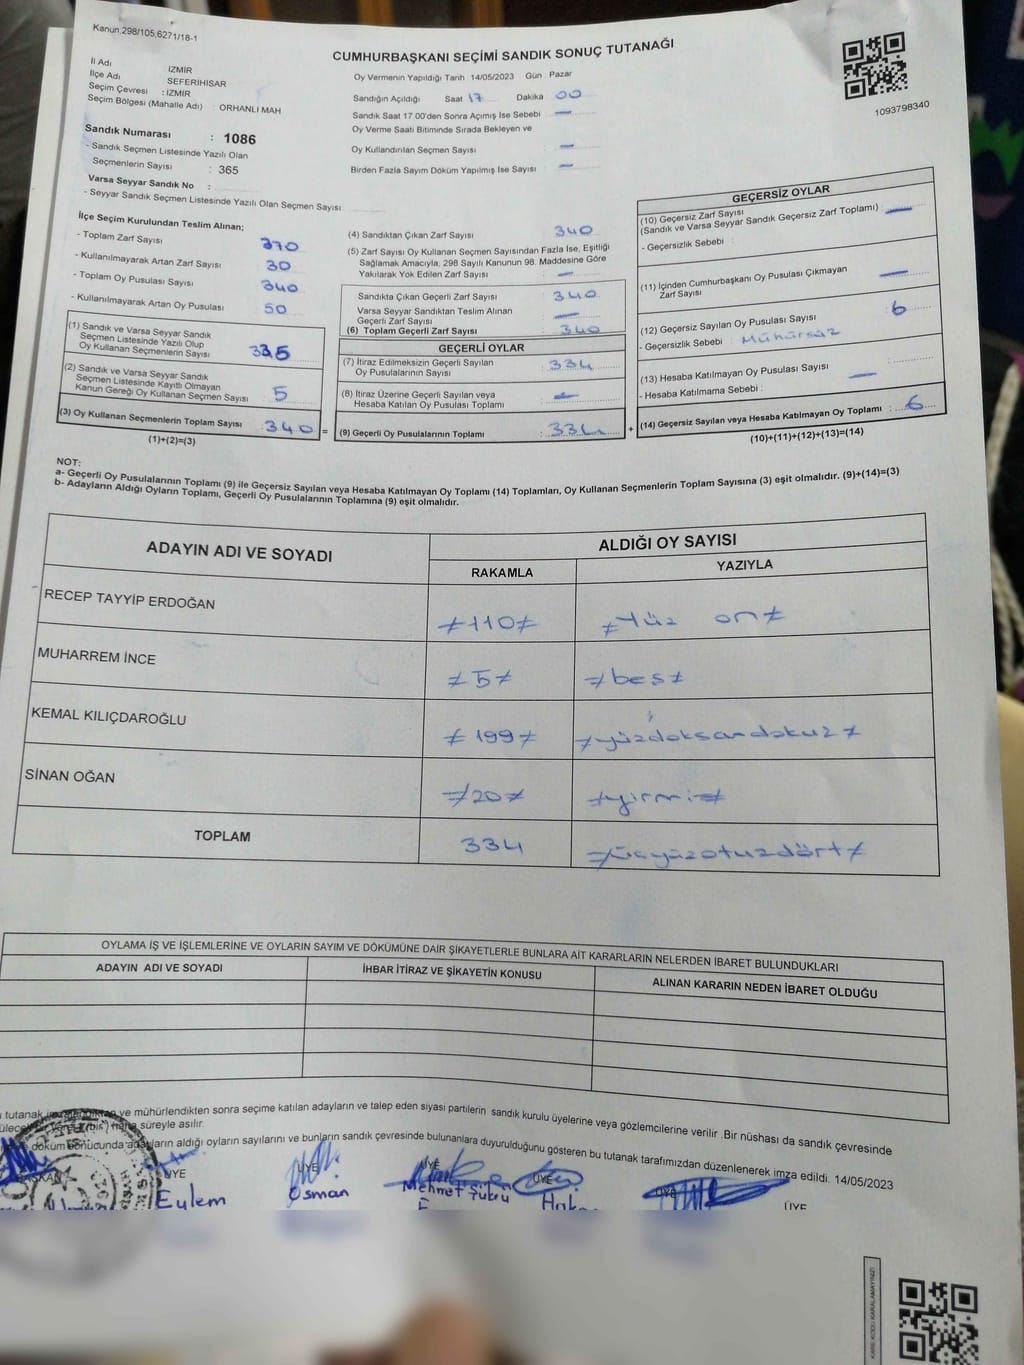 Kanun:298/105,6271/18-1
CUMHURBAŞKANI SEÇİMİ SANDIK SONUÇ TUTANAĞI
1093798340
İl Adı İZMİR
İlçe Adı SEFERİHİSAR
Seçim Çevresi : İZMİR
Seçim Bölgesi (Mahalle Adı) : ORHANLI MAH
Sandık Numarası : 1086
- Sandık Seçmen Listesinde Yazılı Olan
Seçmenlerin Sayısı : 365
Varsa Seyyar Sandık No :
- Seyyar Sandık Seçmen Listesinde Yazılı Olan Seçmen Sayısı
Oy Vermenin Yapıldığı Tarih 14/05/2023 Gün : Pazar
Sandığın Açıldığı Saat 17 Dakika 00
Sandık Saat 17.00'den Sonra Açımış İse Sebebi —
Oy Verme Saati Bitiminde Sırada Bekleyen ve
Oy Kullandırılan Seçmen Sayısı —
Birden Fazla Sayım Döküm Yapılmış İse Sayısı —
İlçe Seçim Kurulundan Teslim Alınan;
- Toplam Zarf Sayısı 370
- Kullanılmayarak Artan Zarf Sayısı 30
- Toplam Oy Pusulası Sayısı 340
- Kullanılmayarak Artan Oy Pusulası 50
(1) Sandık ve Varsa Seyyar Sandık
Seçmen Listesinde Yazılı Olup
Oy Kullanan Seçmenlerin Sayısı 335
(2) Sandık ve Varsa Seyyar Sandık
Seçmen Listesinde Kayıtlı Olmayan
Kanun Gereği Oy Kullanan Seçmen Sayısı 5
(3) Oy Kullanan Seçmenlerin Toplam Sayısı 340 =
(1)+(2)=(3)
(4) Sandıktan Çıkan Zarf Sayısı 340
(5) Zarf Sayısı Oy Kullanan Seçmen Sayısından Fazla İse, Eşitliği
Sağlamak Amacıyla, 298 Sayılı Kanunun 98. Maddesine Göre
Yakılarak Yok Edilen Zarf Sayısı —
Sandıkta Çıkan Geçerli Zarf Sayısı 340
Varsa Seyyar Sandıktan Teslim Alınan
Geçerli Zarf Sayısı —
(6) Toplam Geçerli Zarf Sayısı 340
GEÇERLİ OYLAR
(7) İtiraz Edilmeksizin Geçerli Sayılan
Oy Pusulalarının Sayısı : 334
(8) İtiraz Üzerine Geçerli Sayılan veya
Hesaba Katılan Oy Pusulası Toplamı : —
(9) Geçerli Oy Pusulalarının Toplamı : 334 +
GEÇERSİZ OYLAR
(10) Geçersiz Zarf Sayısı
(Sandık ve Varsa Seyyar Sandık Geçersiz Zarf Toplamı) —
- Geçersizlik Sebebi :
(11) İçinden Cumhurbaşkanı Oy Pusulası Çıkmayan
Zarf Sayısı —
(12) Geçersiz Sayılan Oy Pusulası Sayısı 6
- Geçersizlik Sebebi : Mühürsüz
(13) Hesaba Katılmayan Oy Pusulası Sayısı —
- Hesaba Katılmama Sebebi :
(14) Geçersiz Sayılan veya Hesaba Katılmayan Oy Toplamı : 6
(10)+(11)+(12)+(13)=(14)
NOT:
a- Geçerli Oy Pusulalarının Toplamı (9) ile Geçersiz Sayılan veya Hesaba Katılmayan Oy Toplamı (14) Toplamları, Oy Kullanan Seçmenlerin Toplam Sayısına (3) eşit olmalıdır. (9)+(14)=(3)
b- Adayların Aldığı Oyların Toplamı, Geçerli Oy Pusulalarının Toplamına (9) eşit olmalıdır.
ADAYIN ADI VE SOYADI ALDIĞI OY SAYISI
RAKAMLA YAZIYLA
RECEP TAYYİP ERDOĞAN ≠110≠ ≠Yüz on≠
MUHARREM İNCE ≠5≠ ≠beş≠
KEMAL KILIÇDAROĞLU ≠199≠ ≠yüzdoksandokuz≠
SİNAN OĞAN ≠20≠ ≠yirmi≠
TOPLAM 334 ≠üçyüzotuzdört≠
OYLAMA İŞ VE İŞLEMLERİNE VE OYLARIN SAYIM VE DÖKÜMÜNE DAİR ŞİKAYETLERLE BUNLARA AİT KARARLARIN NELERDEN İBARET BULUNDUKLARI
ADAYIN ADI VE SOYADI İHBAR İTİRAZ VE ŞİKAYETİN KONUSU ALINAN KARARIN NEDEN İBARET OLDUĞU
tutanak ve mühürlendikten sonra seçime katılan adayların ve talep eden siyasi partilerin sandık kurulu üyelerine veya gözlemcilerine verilir .Bir nüshası da sandık çevresinde
hafta süreyle asılır.
döküm sonucunda adayların aldığı oyların sayılarını ve bunların sandık çevresinde bulunanlara duyurulduğunu gösteren bu tutanak tarafımızdan düzenlenerek imza edildi. 14/05/2023
BAŞKAN ÜYE ÜYE ÜYE ÜYE ÜYE ÜYE
Eylem Osman Mehmet Şükrü